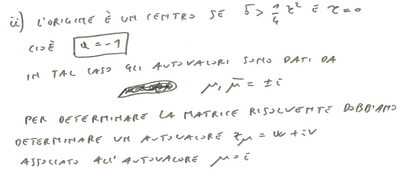 ii) L'ORIGINE È UN CENTRO SE δ > 1/4 τ² E τ = 0
CIOÈ α = -1
IN TAL CASO GLI AUTOVALORI SONO DATI DA
μ, μ̄ = ± i
PER DETERMINARE LA MATRICE RISOLVENTE DOBBIAMO
DETERMINARE UN AUTOVALORE z_μ = u + iv
ASSOCIATO ALL'AUTOVALORE μ = i